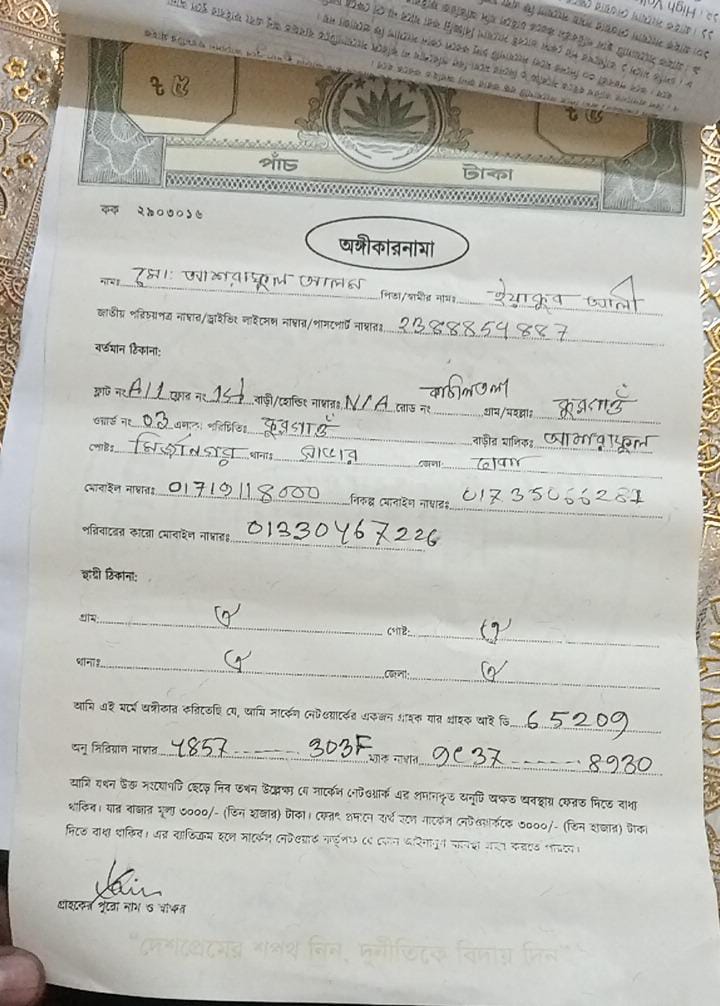 ১২। High
৳ ৫
৳ ৫
পাঁচ টাকা
কক ২৯০৩০১৬
অঙ্গীকারনামা
নামঃ মো: আশরাফুল আলম পিতা/স্বামীর নামঃ ইয়াকুব আলী
জাতীয় পরিচয়পত্র নাম্বার/ড্রাইভিং লাইসেন্স নাম্বার/পাসপোর্ট নাম্বারঃ 2388854887
বর্তমান ঠিকানা:
ফ্লাট নং A/1 ফ্লোর নং 1st বাড়ী/হোল্ডিং নাম্বারঃ N/A রোড নং কাঠালতলা গ্রাম/মহল্লাঃ কুরগাঁও
ওয়ার্ড নং 03 এলাকা পরিচিতিঃ কুরগাঁও বাড়ীর মালিকঃ আশরাফুল
পোষ্টঃ মির্জানগর থানাঃ সাভার জেলাঃ ঢাকা
মোবাইল নাম্বারঃ 01719118000 বিকল্প মোবাইল নাম্বারঃ 01735066281
পরিবারের কারো মোবাইল নাম্বারঃ 01330467226
স্থায়ী ঠিকানা:
গ্রাম: ঐ পোষ্ট: ঐ
থানাঃ ঐ জেলা: ঐ
আমি এই মর্মে অঙ্গীকার করিতেছি যে, আমি সার্কেল নেটওয়ার্কের একজন গ্রাহক যার গ্রাহক আই ডি 65209
অনু সিরিয়াল নাম্বার 4857 ------- 303F ম্যাক নাম্বার 9C37 ------ 8930
আমি যখন উক্ত সংযোগটি ছেড়ে দিব তখন উল্লেখ্য যে সার্কেল নেটওয়ার্ক এর প্রদানকৃত অনুটি অক্ষত অবস্থায় ফেরত দিতে বাধ্য
থাকিব। যার বাজার মূল্য ৩০০০/- (তিন হাজার) টাকা। ফেরৎ প্রদানে ব্যর্থ হলে সার্কেল নেটওয়ার্ককে ৩০০০/- (তিন হাজার) টাকা
দিতে বাধ্য থাকিব। এর ব্যতিক্রম হলে সার্কেল নেটওয়ার্ক কর্তৃপক্ষ যে কোন আইনানুগ ব্যবস্থা গ্রহণ করতে পারবে।
গ্রাহকের পুরো নাম ও স্বাক্ষর
"দেশপ্রেমের শপথ নিন, দুর্নীতিকে বিদায় দিন"